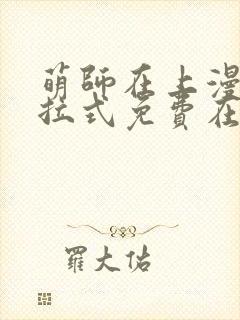 萌师在上漫
拉式免费在
羅大佑